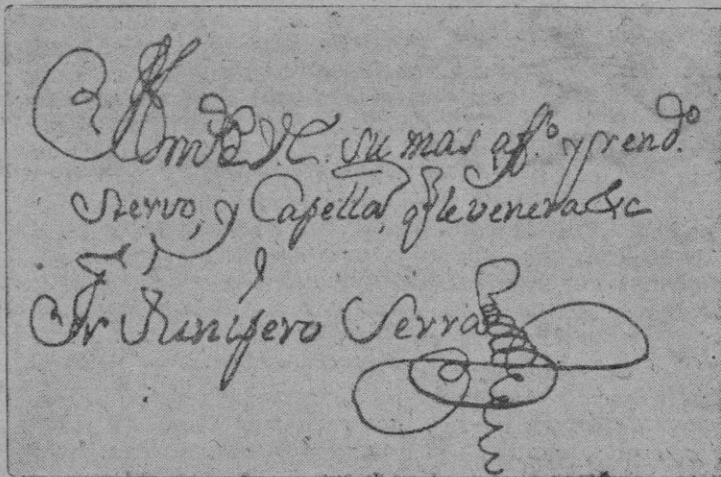 B l m d V E. su mas aff.º y rend.º
siervo, y Capellã, q̃ le venera &c
Fr Junípero Serra